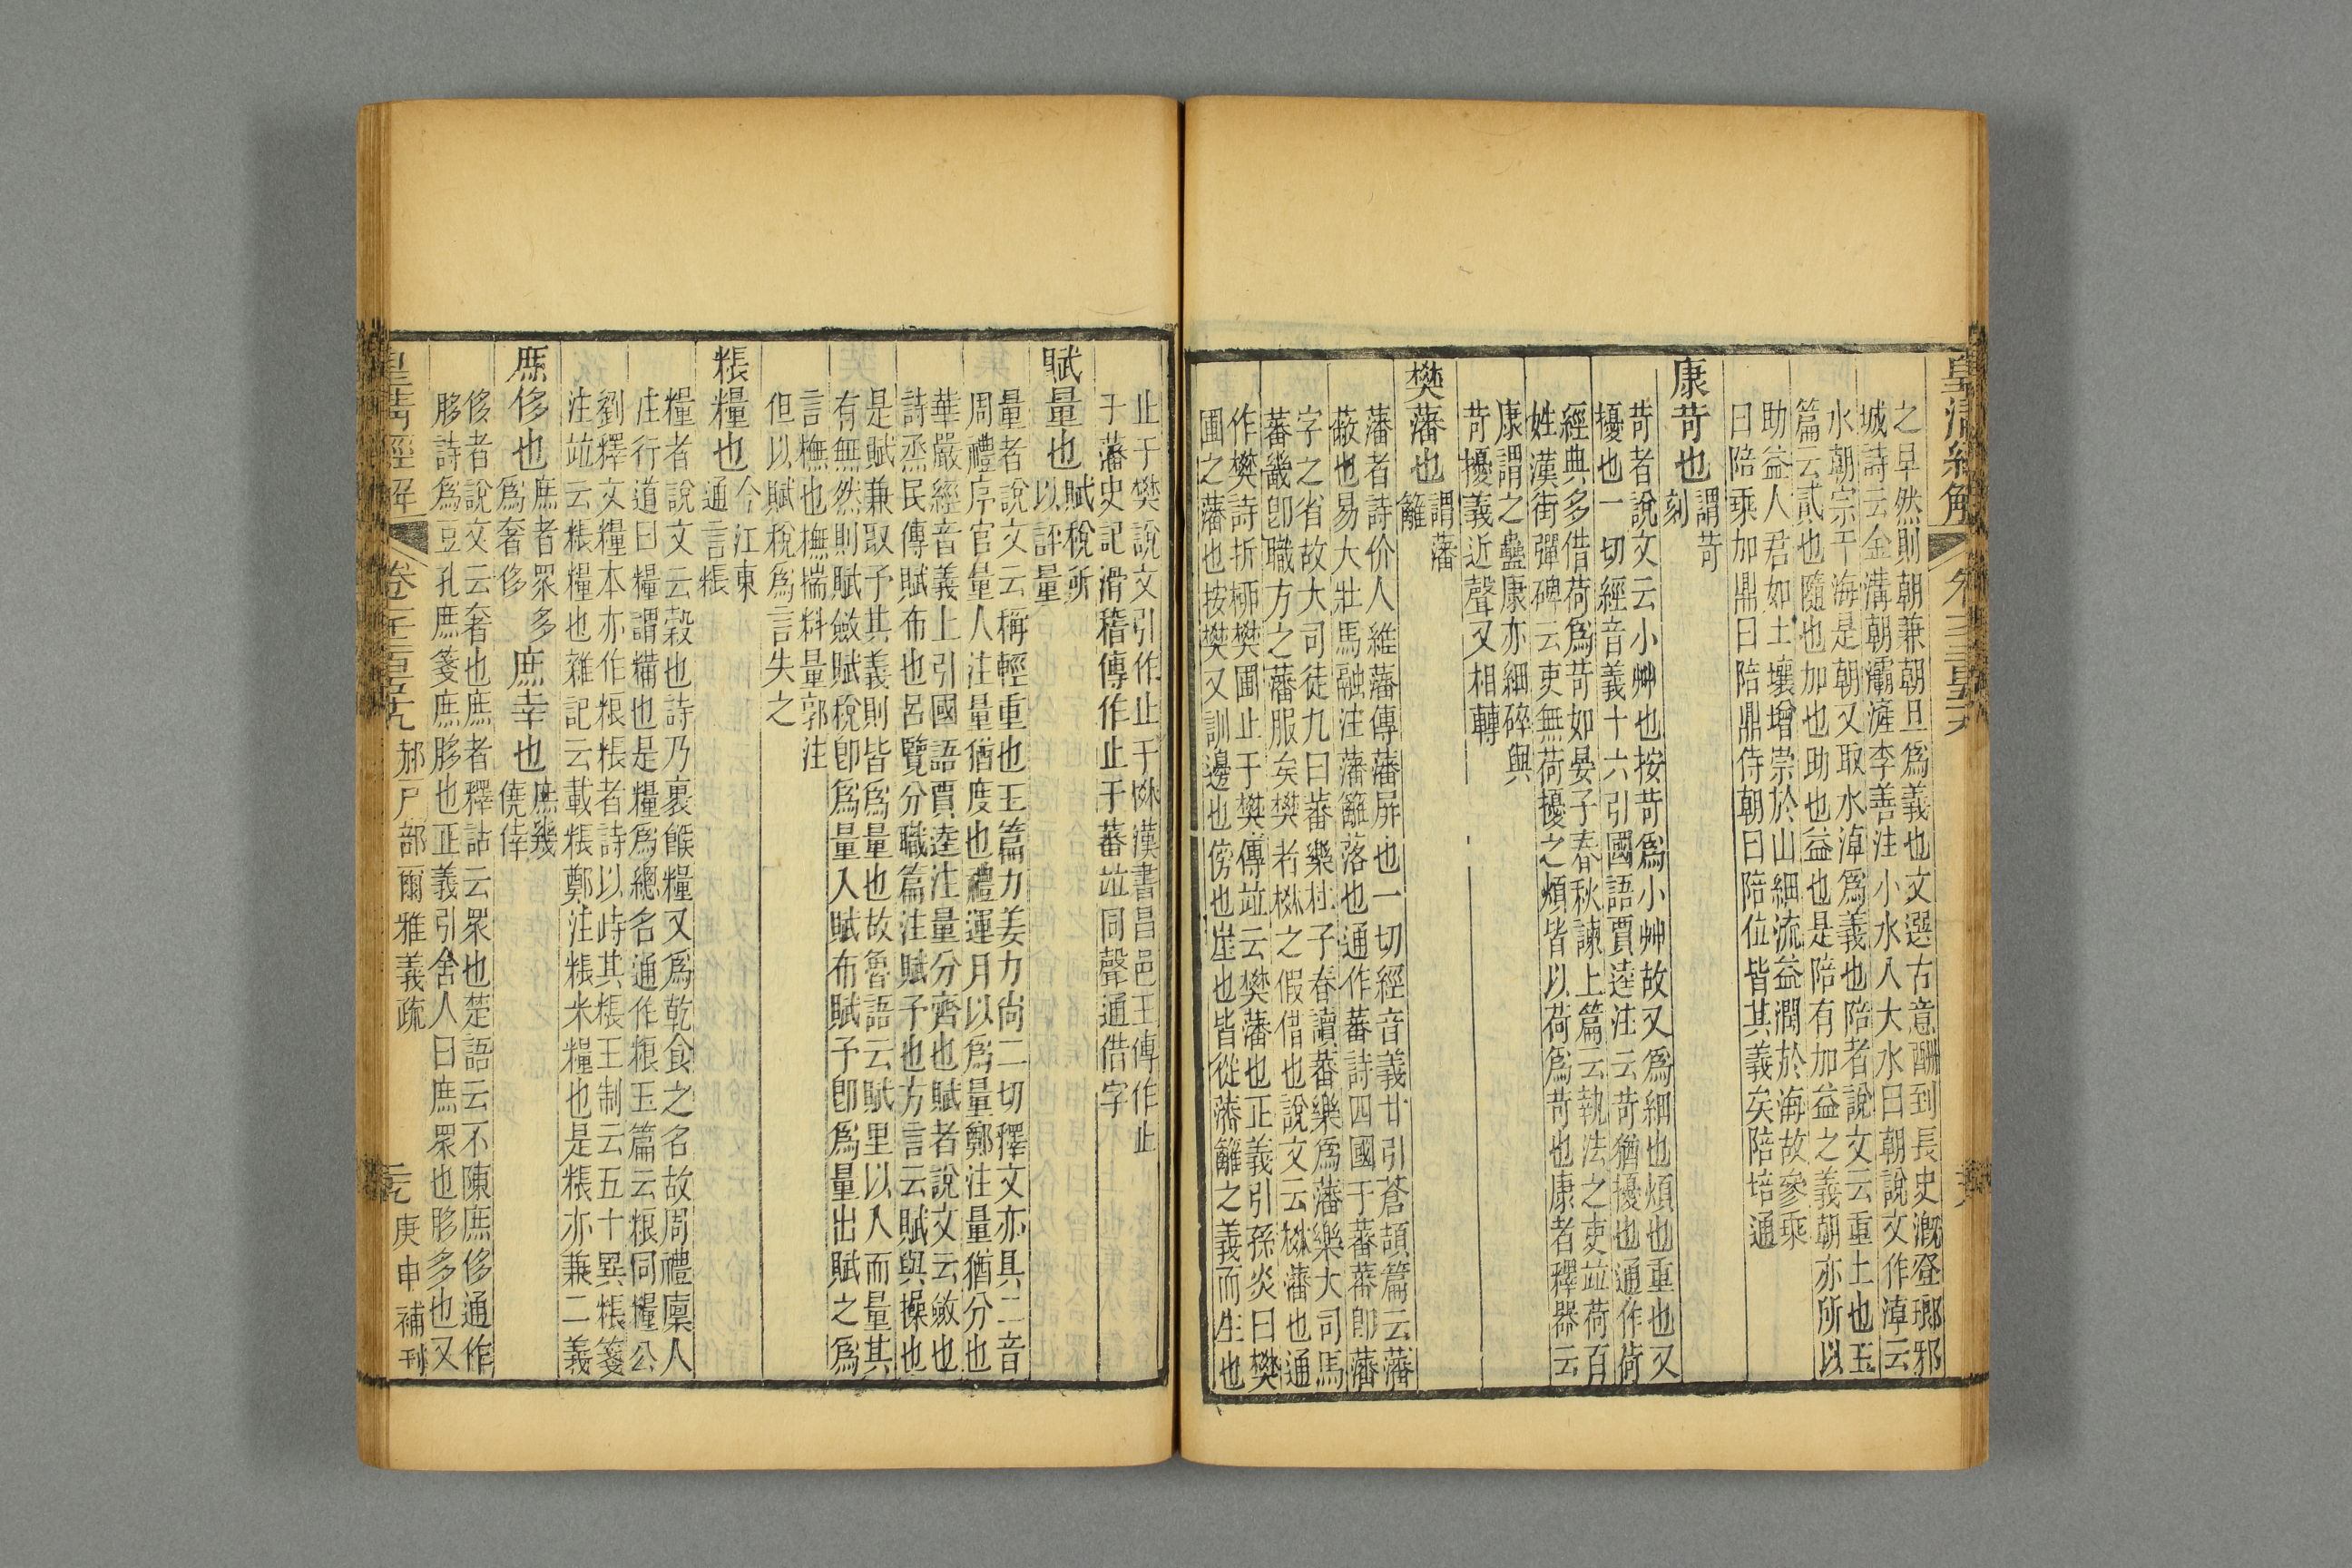 皇清經解
之早然則朝兼朝旦爲義也文選古意酬到長史溉登瑯邪
城詩云金溝朝灞滻李善注小水入大水曰朝說文作淖云
水朝宗于海是朝又取水淖爲義也陪者說文云重土也玉
篇云貳也隨也加也助也益也是陪有加益之義朝亦所以
助益人君如土壤增崇於山細流益潤於海故參乘
曰陪乘加鼎曰陪鼎侍朝曰陪位皆其義矣陪培通
康苛也謂苛
刻
苛者說文云小艸也按苛爲小艸故又爲細也煩也重也又
擾也一切經音義十六引國語賈逵注云苛猶擾也通作荷
經典多借荷爲苛如晏子春秋諫上篇云執法之吏竝荷百
姓漢街彈碑云吏無荷擾之煩皆以荷爲苛也康者釋器云
康謂之蠱康亦細碎與
苛擾義近聲又相轉
樊藩也謂藩
籬
藩者詩价人維藩傳藩屏也一切經音義廿引蒼頡篇云藩
蔽也易大壯馬融注藩籬落也通作蕃詩四國于蕃蕃卽藩
字之省故大司徒九曰蕃樂杜子春讀蕃樂爲藩樂大司馬
蕃畿卽職方之藩服矣樊者棥之假借也說文云棥藩也通
作樊詩折柳樊圃止于樊傳竝云樊藩也正義引孫炎曰樊
圃之藩也按樊又訓邊也傍也崖也皆從藩籬之義而生也
止于樊說文引作止于棥漢書昌邑王傳作止
于藩史記滑稽傳作止于蕃竝同聲通借字
賦量也賦稅所
以評量
量者說文云稱輕重也玉篇力姜力尙二切釋文亦具二音
周禮序官量人注量猶度也禮運月以爲量鄭注量猶分也
華嚴經音義上引國語賈逵注量分齊也賦者說文云斂也
詩烝民傳賦布也呂覽分職篇注賦予也方言云賦與操也
是賦兼取予其義則皆爲量也故魯語云賦里以入而量其
有無然則賦斂賦稅卽爲量入賦布賦予卽爲量出賦之爲
言橅也橅揣料量郭注
但以賦稅爲言失之
粻糧也今江東
通言粻
糧者說文云穀也詩乃裹餱糧又爲乾食之名故周禮廩人
注行道曰糧謂糒也是糧爲總名通作粮玉篇云粮同糧公
劉釋文糧本亦作粮粻者詩以峙其粻王制云五十異粻箋
注竝云粻糧也雜記云載粻鄭注粻米糧也是粻亦兼二義
庶侈也庶者眾多
爲奢侈
庶幸也庶幾
僥倖
侈者說文云奢也庶者釋詁云眾也楚語云不陳庶侈通作
眵詩爲豆孔庶箋庶眵也正義引舍人曰庶眾也眵多也又
皇淸經解
卷千二百五十九
郝戶部爾雅義疏
庚申補刊